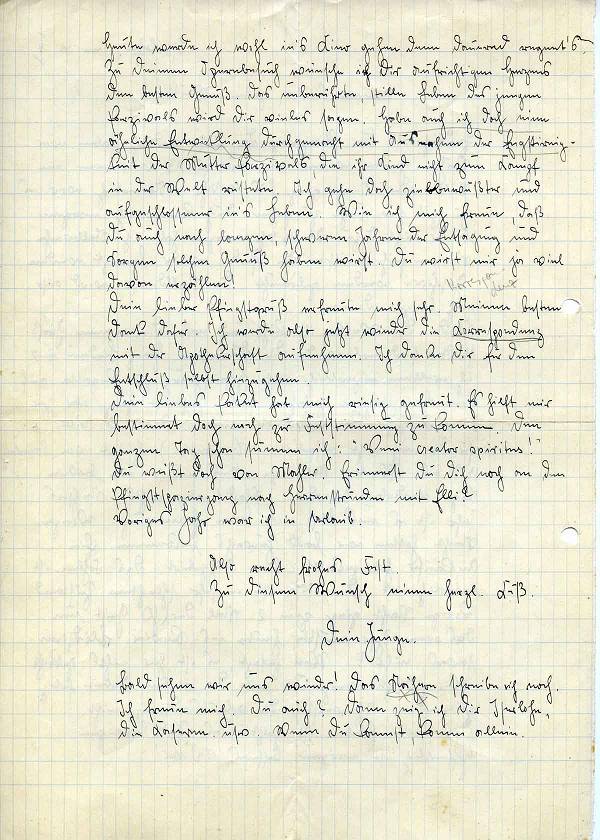 Heute werde ich wohl in's Kino gehen denn dauernd regnet's.
Zu Deinem Opernbesuch wünsche ich Dir aufrichtigen Herzens
den besten Genuß. Das unberührte, stille Leben des jungen
Parzivals wird Dir vieles sagen. Habe auch ich doch eine
ähnliche Entwicklung durchgemacht mit Ausnahme der Engstirnig-
keit der Mutter Parzivals die ihr Kind nicht zum Kampf
in der Welt rüstete. Ich gehe doch zielbewußter und
aufgeschlossener in's Leben. Wie ich mich freue, daß
Du auch nach langen, schweren Jahren der Entsagung und
Sorgen solchen Genuß haben wirst. Du wirst mir ja viel
davon erzählen!
Dein lieber Pfingstgruß erfreute mich sehr. Meinen besten
Dank dafür. Ich werde also jetzt wieder die Korrespondenz
mit der Apothekerschaft aufnehmen. Ich danke Dir für den
Entschluß selbst hinzugehen.
Dein liebes Paket hat mich riesig gefreut. Es hilft mir
bestimmt doch noch zur Feststimmung zu kommen. Den
ganzen Tag schon summe ich: "Veni creator spiritus!"
Du weißt doch von Mahler. Erinnerst Du Dich noch an den
Pfingstspaziergang nach Herrenstrunden mit Elli?
Voriges Jahr war ich in Urlaub.
Also recht frohes Fest.
Zu diesem Wunsch einen herzl. Kuß.
Dein Junge.
Bald sehen wir uns wieder! Das Nähere schreibe ich noch.
Ich freue mich. Du auch? Dann zeig ich Dir Iserlohn,
die Kaserne usw. Wenn Du kommst, komme allein.